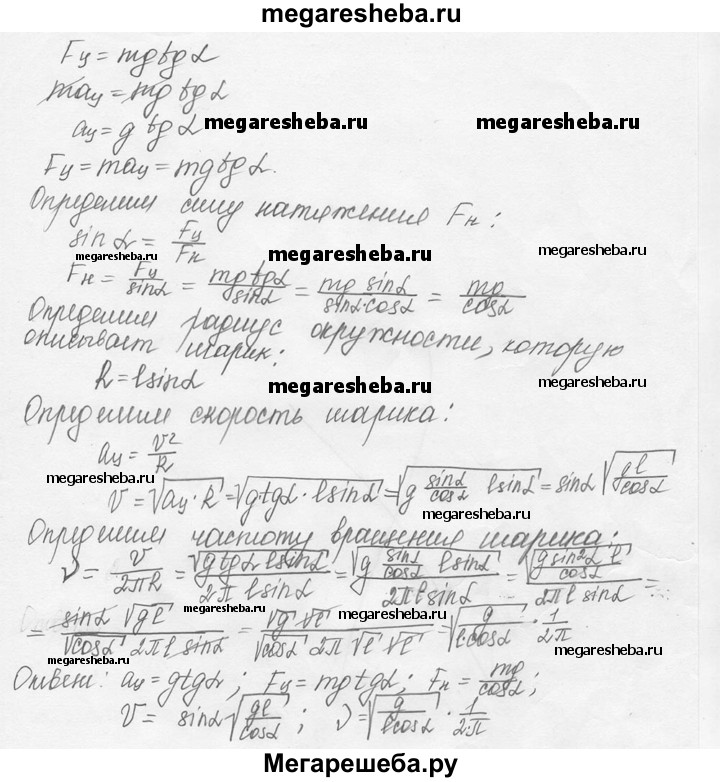 megaresheba.ru
Fц = mg tg α
maц = mg tg α
aц = g tg α megaresheba.ru megaresheba.ru
Fц = maц = mg tg α.
Определим силу натяжения Fн:
sin α = Fц/Fн megaresheba.ru megaresheba.ru megaresheba.ru
Fн = Fц/sin α = mg tg α/sin α = mg sin α/sin α·cos α = mg/cos α
Определим радиус окружности, которую
описывает шарик:
R = l sin α megaresheba.ru megaresheba.ru
Определим скорость шарика:
aц = v²/R
megaresheba.ru
v = √(aц·R) = √(g tg α · l sin α) = √(g sin α/cos α l sin α) = sin α √(gl/cos α)
megaresheba.ru
Определим частоту вращения шарика:
ν = v/2πR = √(g tg α l sin α)/2π l sin α = √(g sin α/cos α l sin α)/2π l sin α = √(g sin² α l/cos α)/2π l sin α =
megaresheba.ru megaresheba.ru
= sin α √(gl)/√(cos α) 2π l sin α = √g √l/√(cos α) 2π √l √l = √(g/l cos α) · 1/2π
megaresheba.ru megaresheba.ru
Ответ: aц = g tg α; Fц = mg tg α; Fн = mg/cos α;
v = sin α √(gl/cos α); ν = √(g/l cos α) · 1/2π
Мегарешеба.ру